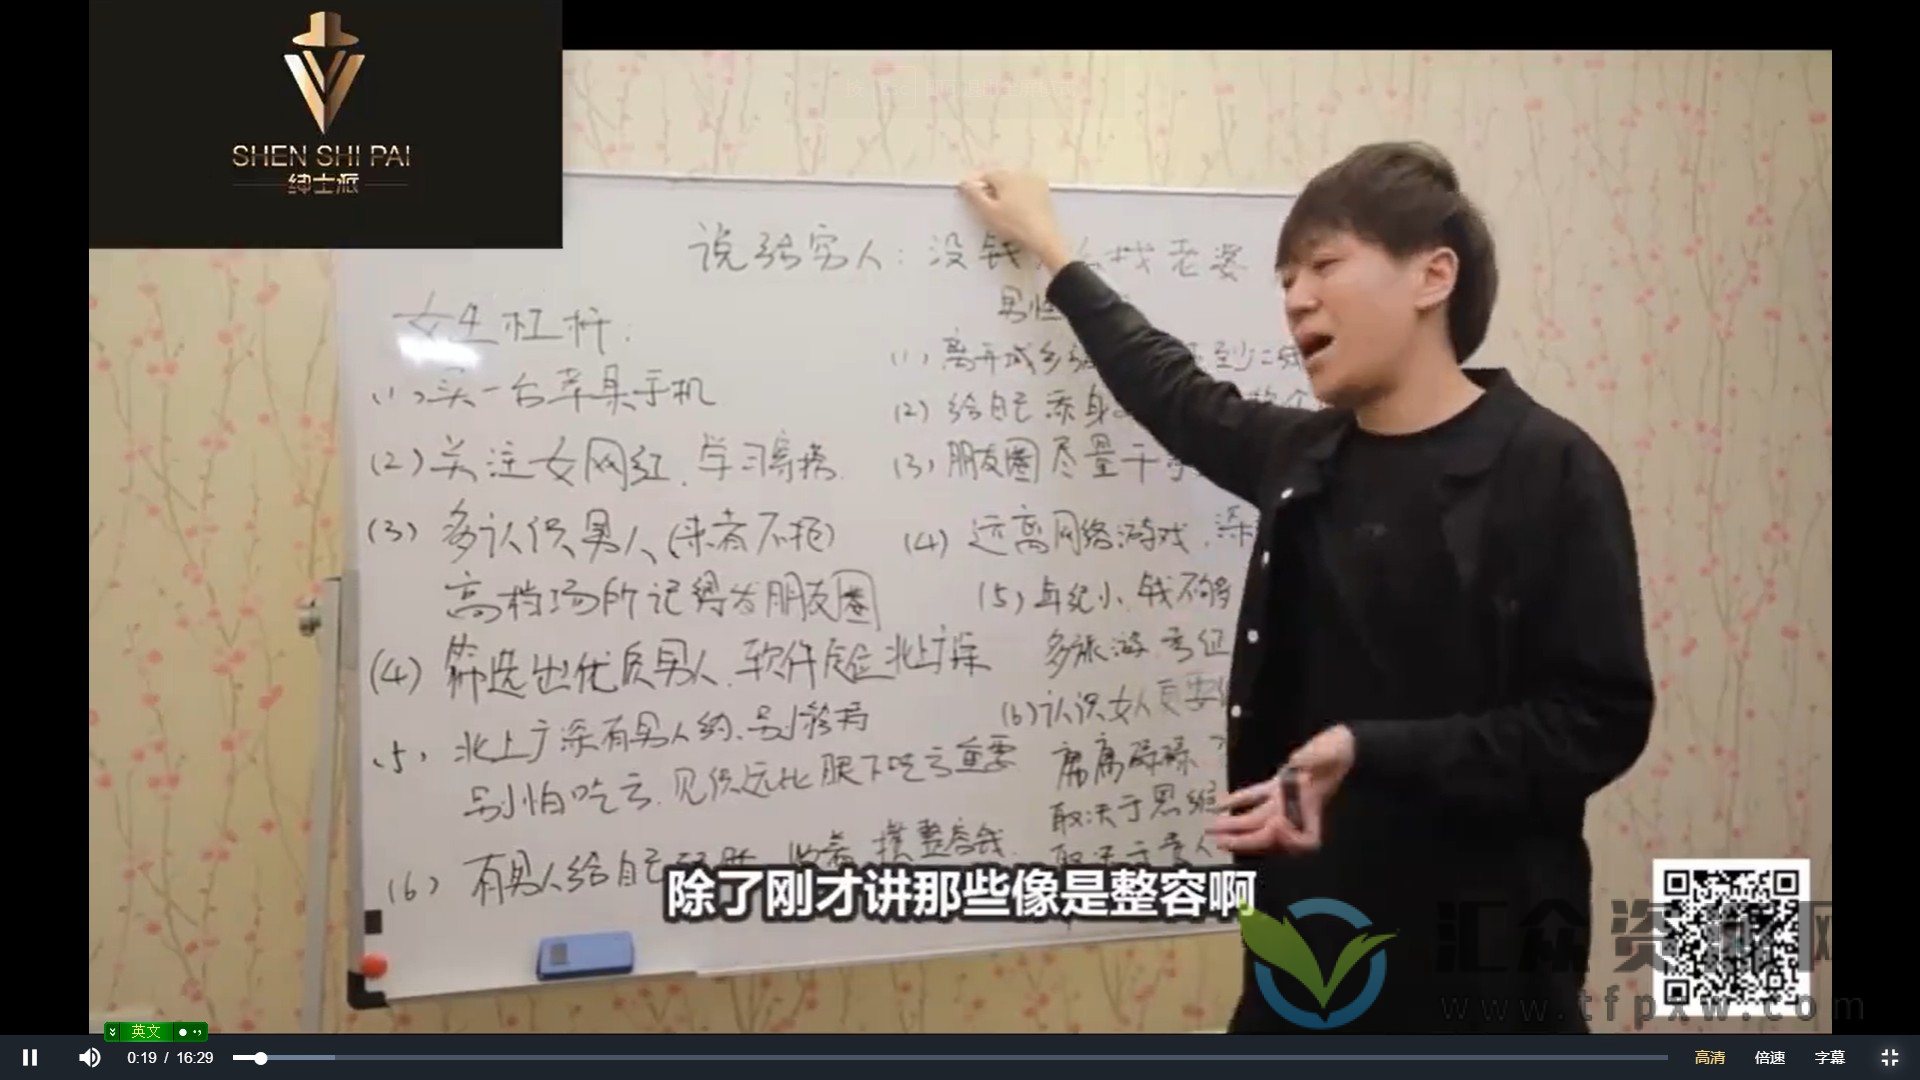 SHEN SHI PAI
绅士派
说给穷人：没钱 找老婆
女生杠杆：
(1) 买一台苹果手机
(2) 关注女网红，学习穿搭
(3) 多认识男人（来者不拒）
高档场所记得发朋友圈
(4) 筛选出优质男人，软件定位北上广深
(5) 北上广深有男人约，别
别怕吃亏，见识远比眼下吃亏重要
(6) 有男人给自己 整容钱
男性
(1) 离开城乡 至少二线
(2) 给自己添身
(3) 朋友圈尽量干
(4) 远离网络游戏，深
(5) 年纪小、钱不够
多旅游，考证
(6) 认识女人更要
庸庸碌碌
取决于思维
取决于
除了刚才讲那些像是整容啊
汇众资 网
www.tfpxw.com
英文
0:19 / 16:29
高清
倍速
字幕